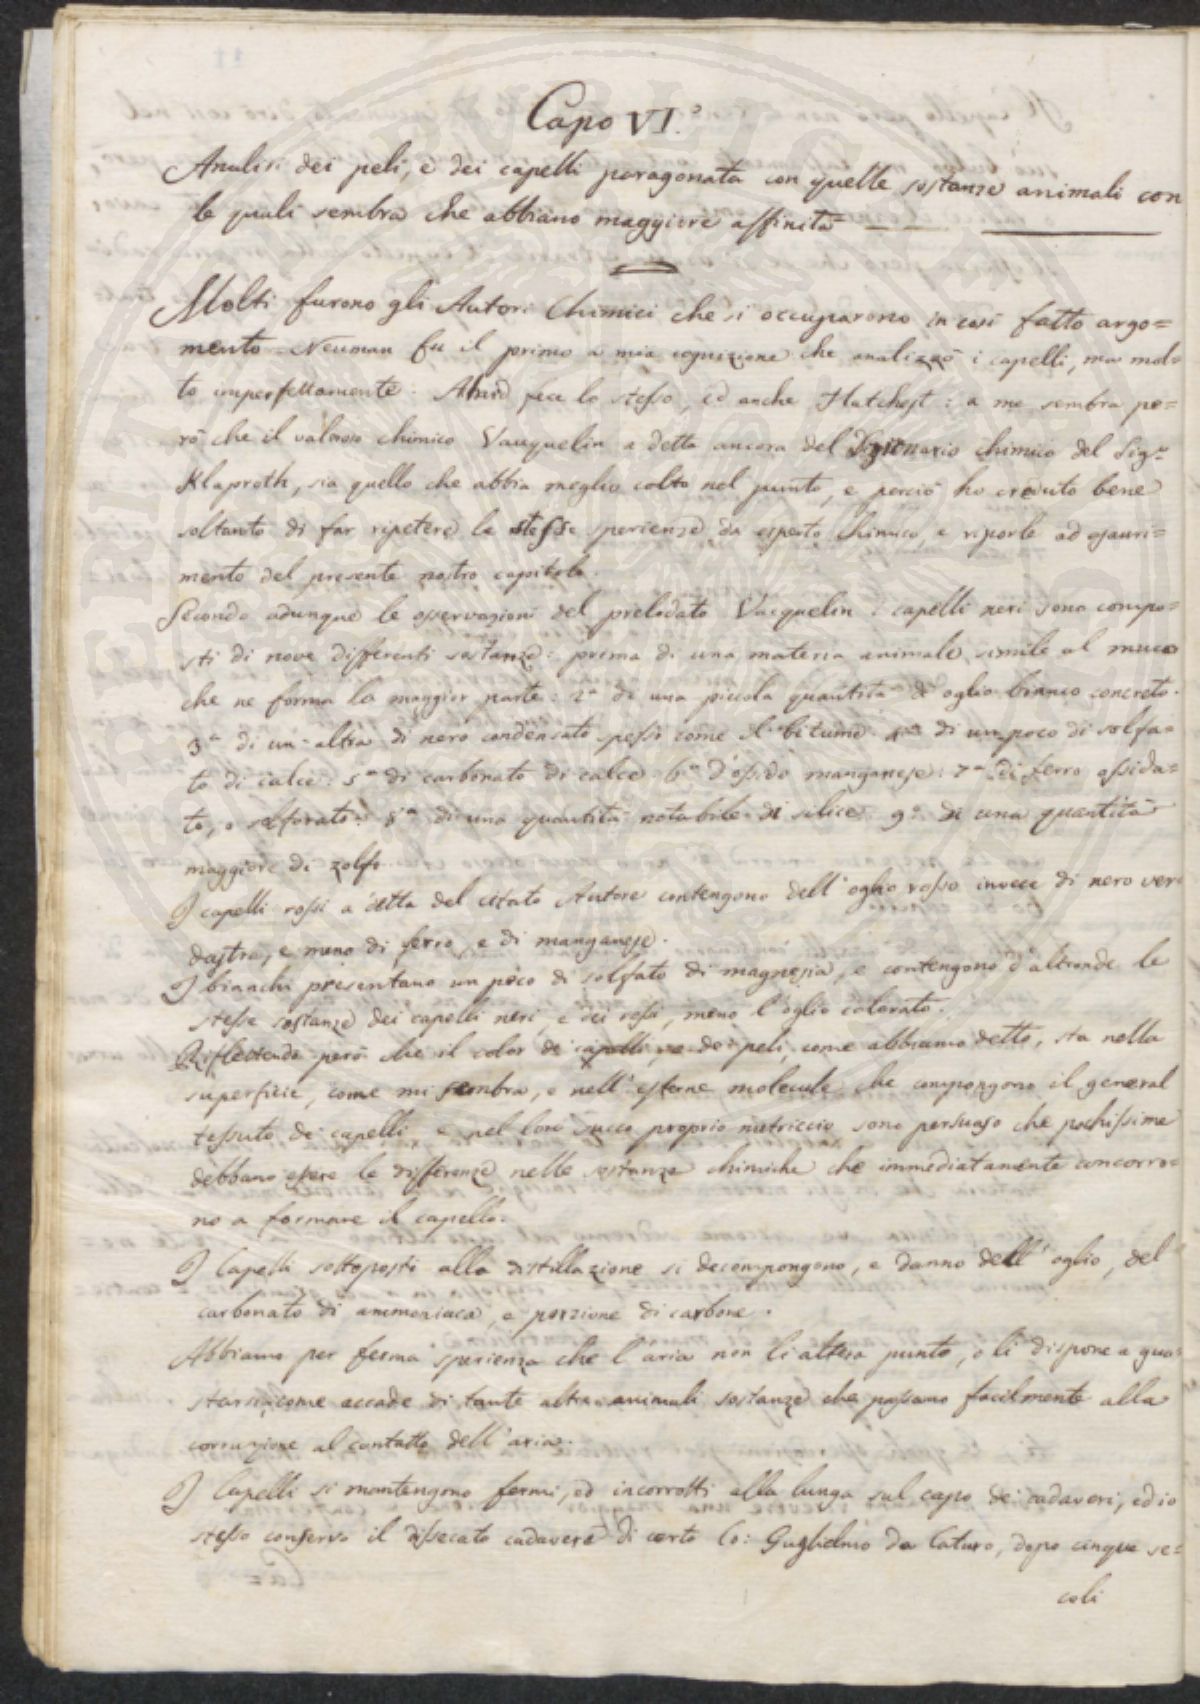 Capo VI.°
Analisi dei peli, e dei capelli paragonata con quelle sostanze animali con
le quali sembra che abbiano maggiore affinità
Molti furono gli Autori Chimici che si occuparono in così fatto argo=
mento. Neuman fu il primo a mia cognizione che analizzò i capelli, ma mol=
to imperfettamente. fece lo stesso, ed anche Hatchest: a me sembra pe=
rò che il valoroso chimico Vauquelin a detta ancora del Dizionario chimico del Sig.r
Klaproth, sia quello che abbia meglio colto nel punto, e perciò ho creduto bene
soltanto di far ripetere le stesse sperienze da esperto Chimico, e riporle ad esauri=
mento del presente nostro capitolo.
Secondo adunque le osservazioni del prelodato Vacquelin i capelli neri sono compo=
sti di nove differenti sostanze: prima di una materia animale simile al muco
che ne forma la maggior parte: 2.a di una piccola quantità di oglio bianco concreto.
3.a di un altra di nero condensato spesso come il bitume. 4.a di un poco di solfa=
to di calce: 5.a di carbonato di calce. 6.a d'ossido manganese: 7.a di ferro ossida=
to, o solforato: 8.a di una quantità notabile di silice. 9.a di una quantità
maggiore di zolfo.
I capelli rossi a detta del citato Autore contengono dell'oglio rosso invece di nero ver
dastro, e meno di ferro, e di manganese.
I bianchi presentano un poco di solfato di magnesia, e contengono d'altronde le
stesse sostanze dei capelli neri, e dei rossi, meno l'oglio colorato.
Riflettendo però che il color de capelli, e dei peli come abbiamo detto, sta nella
superficie, come mi sembra, e nell'esterne molecule che compongono il general
tessuto de capelli e nel loro succo proprio nutriccio sono persuaso che pochissime
debbano essere le differenze nelle sostanze chimiche che immediatamente concorro=
no a formare il capello.
I Capelli sottoposti alla distillazione si decompongono, e danno dell'oglio, del
carbonato di ammoniaca, e porzione di carbone.
Abbiamo per ferma sperienza che l'aria non li altera punto, o li dispone a gua=
starsi come accade di tante altre animali sostanze che passano facilmente alla
corruzione al contatto dell'aria.
I Capelli si mantengono fermi, ed incorrotti alla lunga sul capo dei cadaveri, ed io
stesso conservo il dissecato cadavere di certo Co: Guglielmo da Caturo, dopo cinque se=
coli